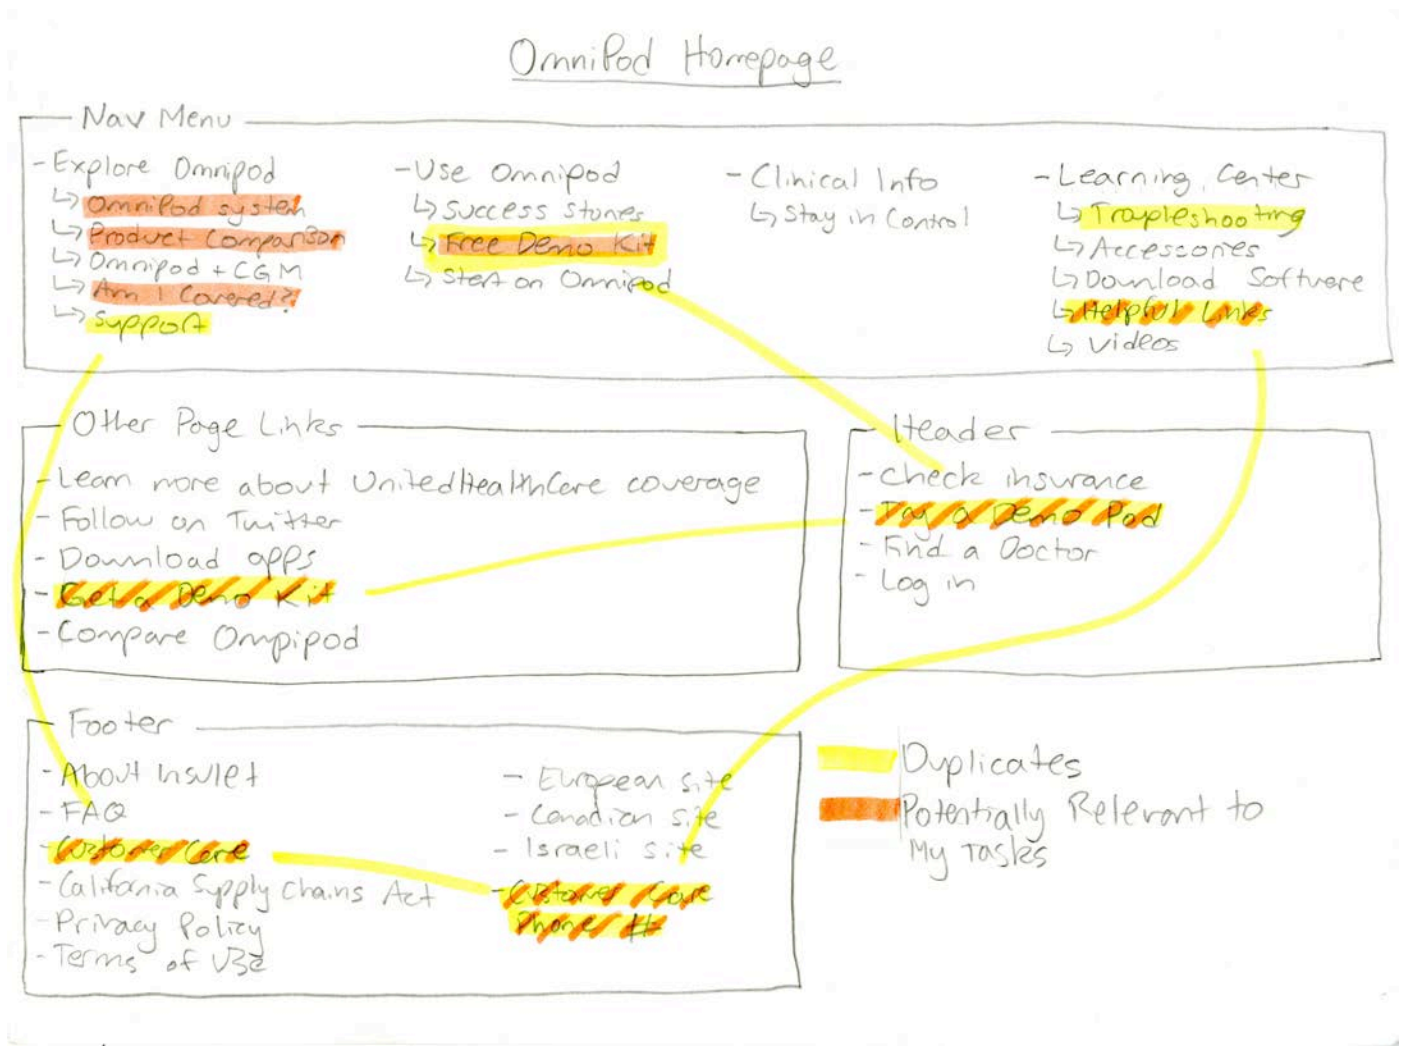 OmniPod Homepage
Nav Menu
- Explore Omnipod
↳ Omnipod system
↳ Product Comparison
↳ Omnipod + CGM
↳ Am I Covered?
↳ Support
- Use Omnipod
↳ Success stories
↳ Free Demo Kit
↳ Start on Omnipod
- Clinical Info
↳ Stay in Control
- Learning Center
↳ Troupleshooting
↳ Accessories
↳ Download Software
↳ Helpful Links
↳ Videos
Other Page Links
- Learn more about UnitedHealthCare coverage
- Follow on Twitter
- Download apps
- Get a Demo Kit
- Compare Ompipod
Header
- Check insurance
- Try a Demo Pod
- Find a Doctor
- Log in
Footer
- About Insulet
- FAQ
- Customer Care
- California Supply Chains Act
- Privacy Policy
- Terms of Use
- European site
- Canadian site
- Israeli site
- Customer Care
Phone #
Duplicates
Potentially Relevant to
My Tasks